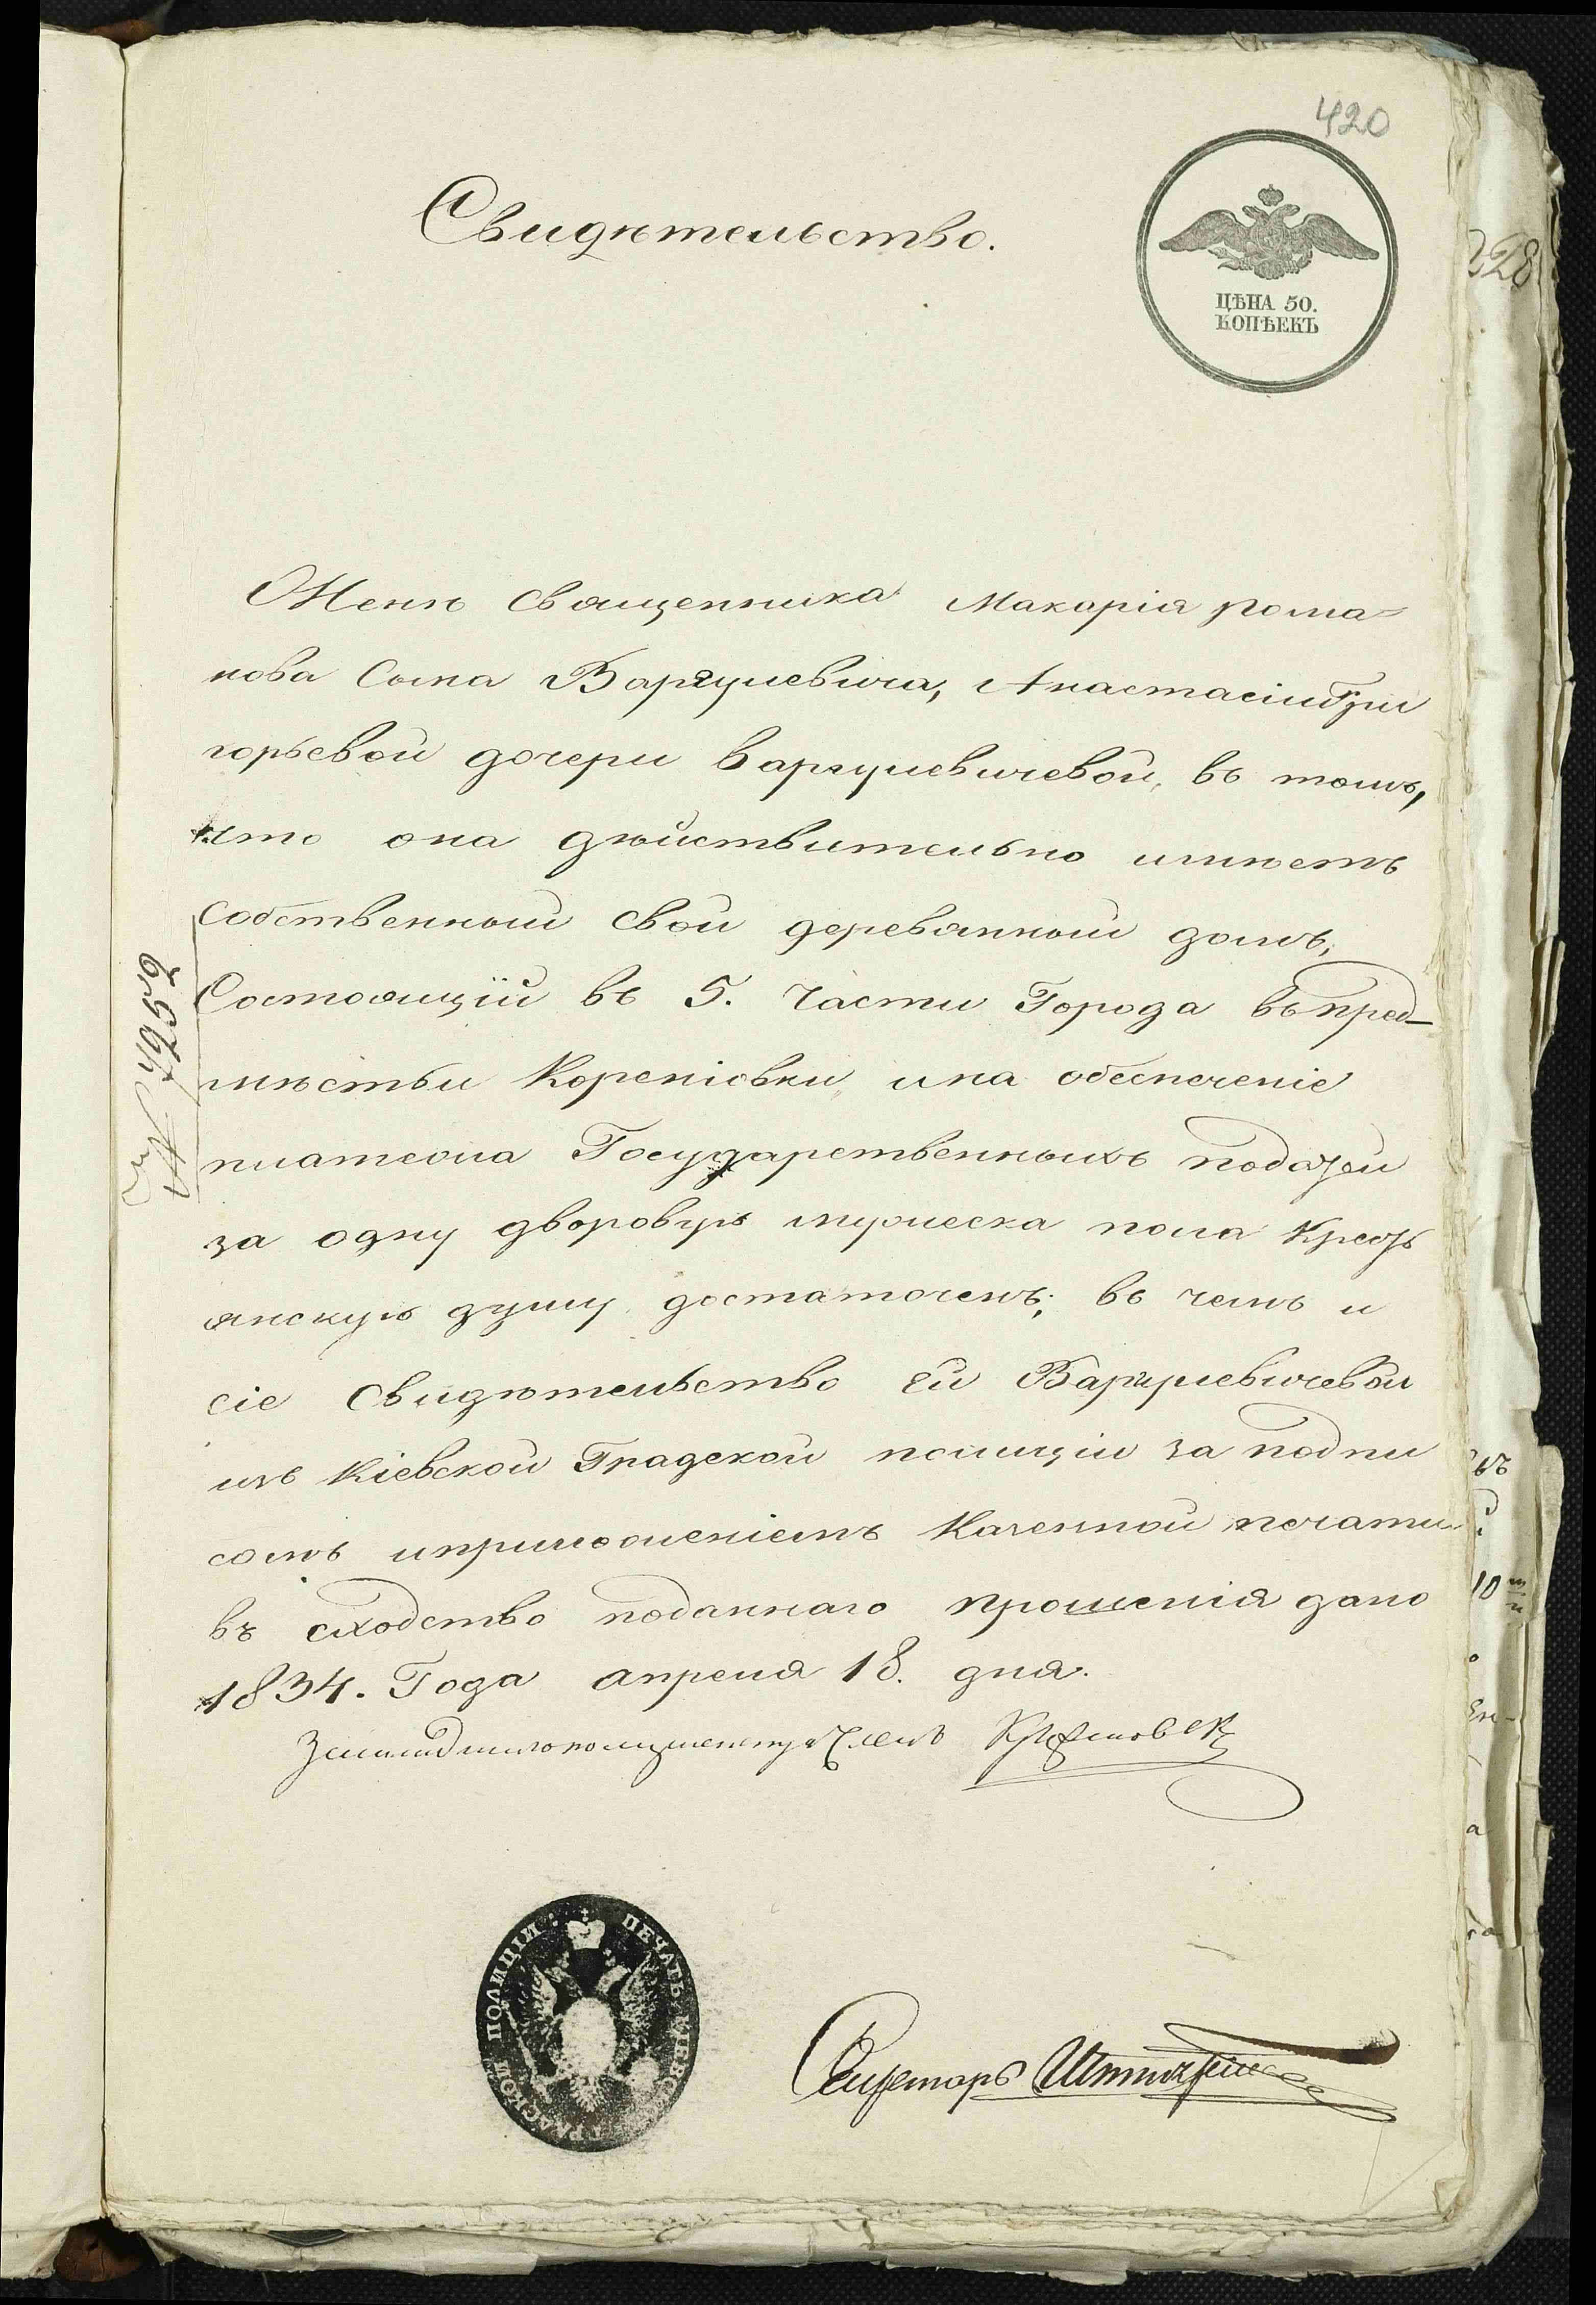 420
Свидѣтельство.
ЦѢНА 50.
КОПѢЕКЪ
228
Женѣ священника Макарія Рома=
нова сына Варгулевича, Анастасіи Гри
горьевой дочери Варгулевичевой, въ томъ,
что она дѣйствительно имѣетъ
собственный свой деревянный домъ,
Состоящій въ 5. Части Города въ пред-
мѣстьи Кореніовки, и на обеспеченіе
платежа Государственныхъ податей
за одну дворовую мужеска пола Кресть
янскую душу достаточенъ; въ чемъ и
сіе свидѣтельство ей Варгулевичевой
изъ Кіевской Градской полиціи за подпи
сомъ и приложеніемъ Казенной печати
въ сходство поданнаго прошенія дано
1834. Года апреля 18. дня.
Членъ
№ 4252
ПЕЧАТЬ КІЕВСКОЙ ГРАДСКОЙ ПОЛИЦІИ
Секретарь